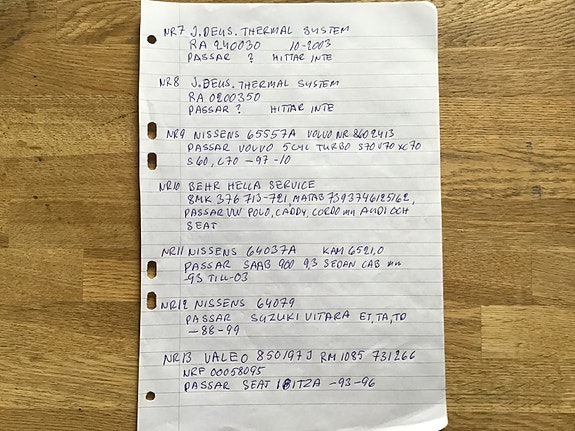 NR7 J.DEUS. THERMAL SYSTEM
RA 240030 10-2003
PASSAR ? HITTAR INTE
NR8 J.DEUS. THERMAL SYSTEM
RA 0200350
PASSAR ? HITTAR INTE
NR9 NISSENS 65557A VOLVO NR 8602413
PASSAR VOLVO 5CYL TURBO S70 V70 XC70
S60, C70 -97-10
NR10 BEHR HELLA SERVICE
8MK 376 713-721, MATAB 7393746125162,
PASSAR VW POLO, CADDY, CORDO MM AUDI OCH
SEAT
NR11 NISSENS 64037A KAM 6521,0
PASSAR SAAB 900 9,3 SEDAN CAB MM
-93 TILL-03
NR12 NISSENS 64079
PASSAR SUZUKI VITARA ET, TA, TD
-88-99
NR13 VALEO 850197J RM 1085 731266
NRF 00058095
PASSAR SEAT IBITZA -93-96